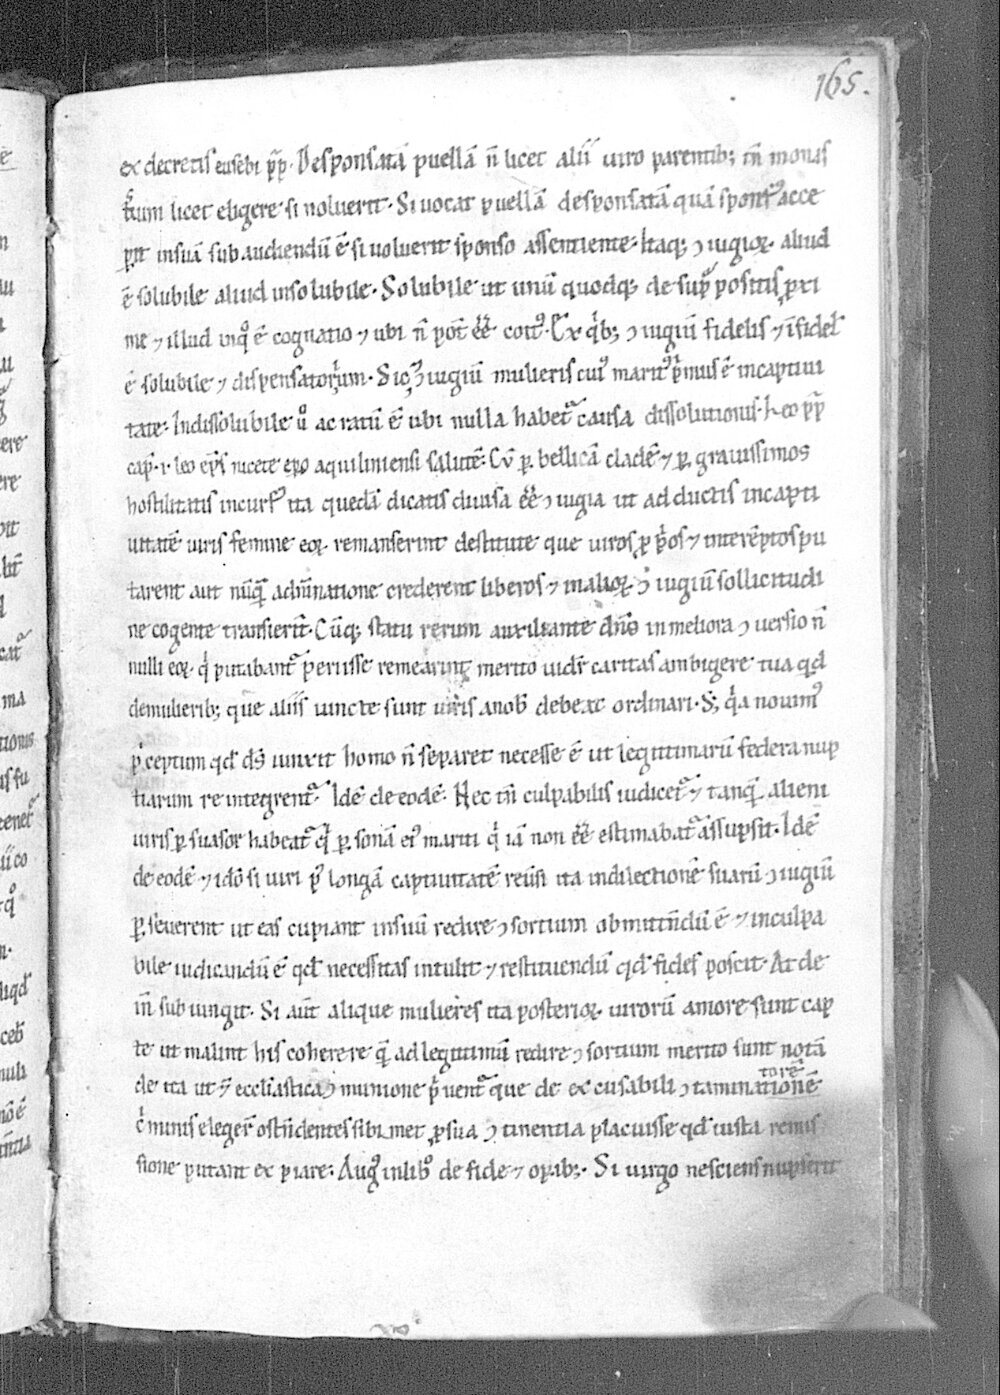 165.
ex decretis eusebi pp̄. Desponsatā puellā n̄ licet alii uiro parentib; tn̄ monas
t̄ium licet eligere si noluerit. Si uocat puellā desponsatā quā sponsꝰ acce
ꝑit insuā subaudiendū ē si uoluerit sponso assentiente. Itaq; ↄiugioꝝ aliud
ē solubile aliud insolubile. Solubile ut unū quodq; de sup̄ positis ꝓxi
me ⁊ illud inq°̄ ē cognatio ⁊ ubi n̄ pot̄ ēē coitꝰ. Ex qͥb; ↄiugiū fidelis ⁊ īfidel̄
ē solubile ⁊ dispensatoꝛium. Sic ⁊ ↄiugiū mulieris cuiꝰ maritꝰ p̄mus ē incaptiui
tate. Indissolubile u° ac ratū ē ubi nulla habet᷑ causa dissolutionis. Leo pp̄
cap̄. i. leo ep̄s nicete ep̄o aquiliniensi salutē. Cū ꝑ bellicā cladē ⁊ ꝑ grauissimos
hostilitatis incurs᷒ ita quedā dicatis diuisa ēē ↄiugia ut adductis incapti
uitatē uiris femine eoꝝ remanserint destitute que uiros ꝓp̄os ⁊ interēptos pu
tarent aut nūq̄ā adn̄inatione crederent liberos ⁊ inalioꝝ ↄiugiū sollicitudi
ne cogente transierīt. Cūq; statu rerum auxiliante dn̄o inmeliora ↄuersio n̄
nulli eoꝝ qͥ putabant᷑ periisse remearint merito uidr̄ caritas ambigere tua qd̄
demulierib; que aliis iuncte sunt uiris anob̄ debeat ordinari. S; qͥa nouimꝰ
p̄ceptum qd̄ ds̄ iunxit homo n̄ separet necesse ē ut legitimarū federa nup
tiarum reintegrent᷑. Idē de eodē. Nec tn̄ culpabilis iudicet᷑ ⁊ tanq̄ā alieni
iuris ꝑsuasor habeat᷑ qͥ ꝑsonā eiꝰ mariti qͥ iā non ēē estimabat᷑ assupsit. Idē
de eodē ⁊ idō si uiri p᷒ longā captiuitatē reūsi ita indilectionē suarū ↄiugiū
ꝑseuerent ut eas cupiant insuū redire ↄsortium obmittn̄dū ē ⁊ inculpa
bile iudicandū ē qd̄ necessitas intulit ⁊ restituendū qd̄ fides poscit. At de
in̄ subiungit. Si aūt alique mulieres ita posterioꝝ uiroꝛū amore sunt cap
te ut malint his coherere q̄ā adlegitimū redire ↄsortium merito sunt notā
de ita ut ⁊̄ ecclīastica ↄmunione p̄uent᷑ que de excusabili ↄtaminationē
torē
c̄minis elegeṝ ostn̄dentes sibimet ꝓsua ↄtinentia placuisse qd̄ iusta remis
sione putant expiare. Augꝰ inlib° de fide ⁊ oꝑib;. Si uirgo nesciens nupserit